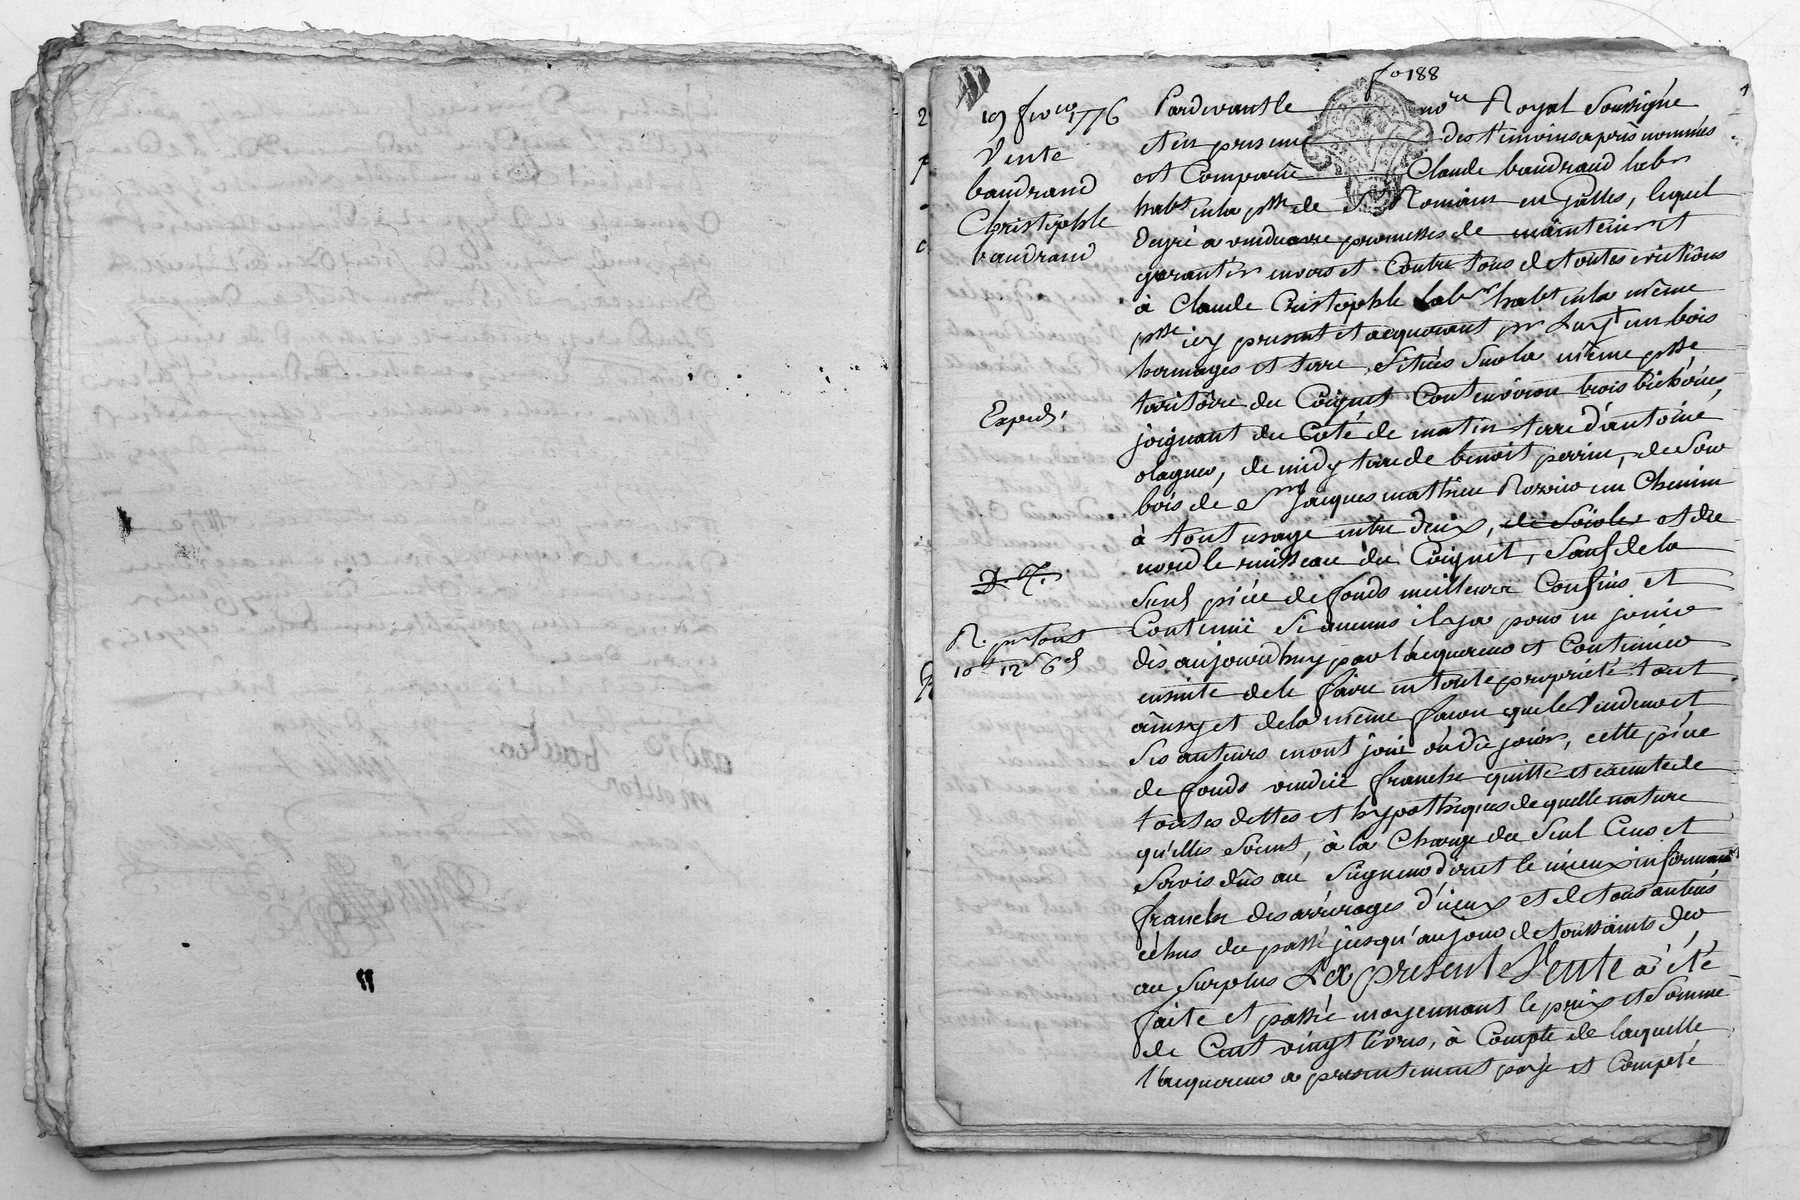 fo 188
19 fvrier 1776
Vente
baudrand
Christophle
baudrand
Expedi
D. F.
R. pr tous
10# 12s 6d
Pardevant le no.re Royal Soussigné
et en presence des temoins après nommés
est Comparû Claude baudrand labr
habt en la psse de St Romain en Galles, lequel
degré a vendu avec promesses de maintenir et
garantir envers et Contre tous de toutes evictions
à Claude Cristophle labr habt en la même
psse icy present et acquerant un bois
hermages et terre Situés Sur la même psse
territoire du Coignet Cont environ trois bicherées
joignant du Coté de matin terre d'antoine
olagner, de midy terre de benoit perrin, de Soir
bois de Sr Jacques mathieu Rozier un Chemin
à tout usage entre deux, et de
nord le ruisseau du Coignet, Sauf de la
Susd piece de fonds meilleurs Confins et
Contenüe Si aucuns il y a pour en jouir
dès aujourd'huy par l'acquereur et Continuer
ensuite de le faire en toute proprieté tout
ainsy et de la même façon que le Vendeur et
Ses auteurs en ont joui ou dû jouir, cette piece
de fonds vendüe franche quitte et exempte de
toutes dettes et hypotheques de quelle nature
qu'elles Soient, à la Charge du Seul Cens et
Servis dûs au Seigneur direct le mieux informant
franche des arrerages d'iceux et de tous autres
échus du passé jusqu'au jour de toussaints der
au Surplus La presente Vente a été
faite et passée moyennant le prix et Somme
de Cent vingt livres, à Compte de laquelle
l'acquereur a presentement payé et Compté